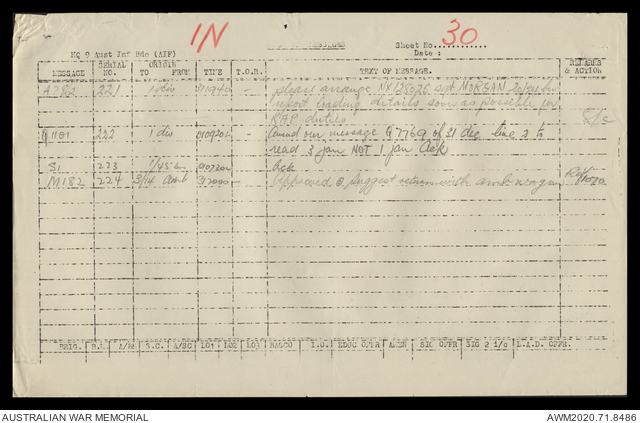 IN
30
Sheet No............
HQ 9 Aust Inf Bde (AIF)
Date :
MESSAGE SERIAL NO. ORIGIN TO FROM TIME T.O.R. TEXT OF MESSAGE. REMARKS & ACTION
A282 221 1 div 311940 - please arrange NX128025 sgt MORGAN
report leading details soon as possible for
RAP duties
G1101 222 1 div 010920 - amend our message G7769 of 31 dec line 2 to
read 3 jan NOT 1 jan ack
S1 223 -
M182 224 3/14 amb 317000 - approved suggest return with amb wagon
BRIG. B.M. S.C. A/SC LO1 LO2 LO3 I.O. EDUC OFFR SIG OFFR SIG 2 i/c L.A.D. OFFR.
AUSTRALIAN WAR MEMORIAL
AWM2020.71.8486